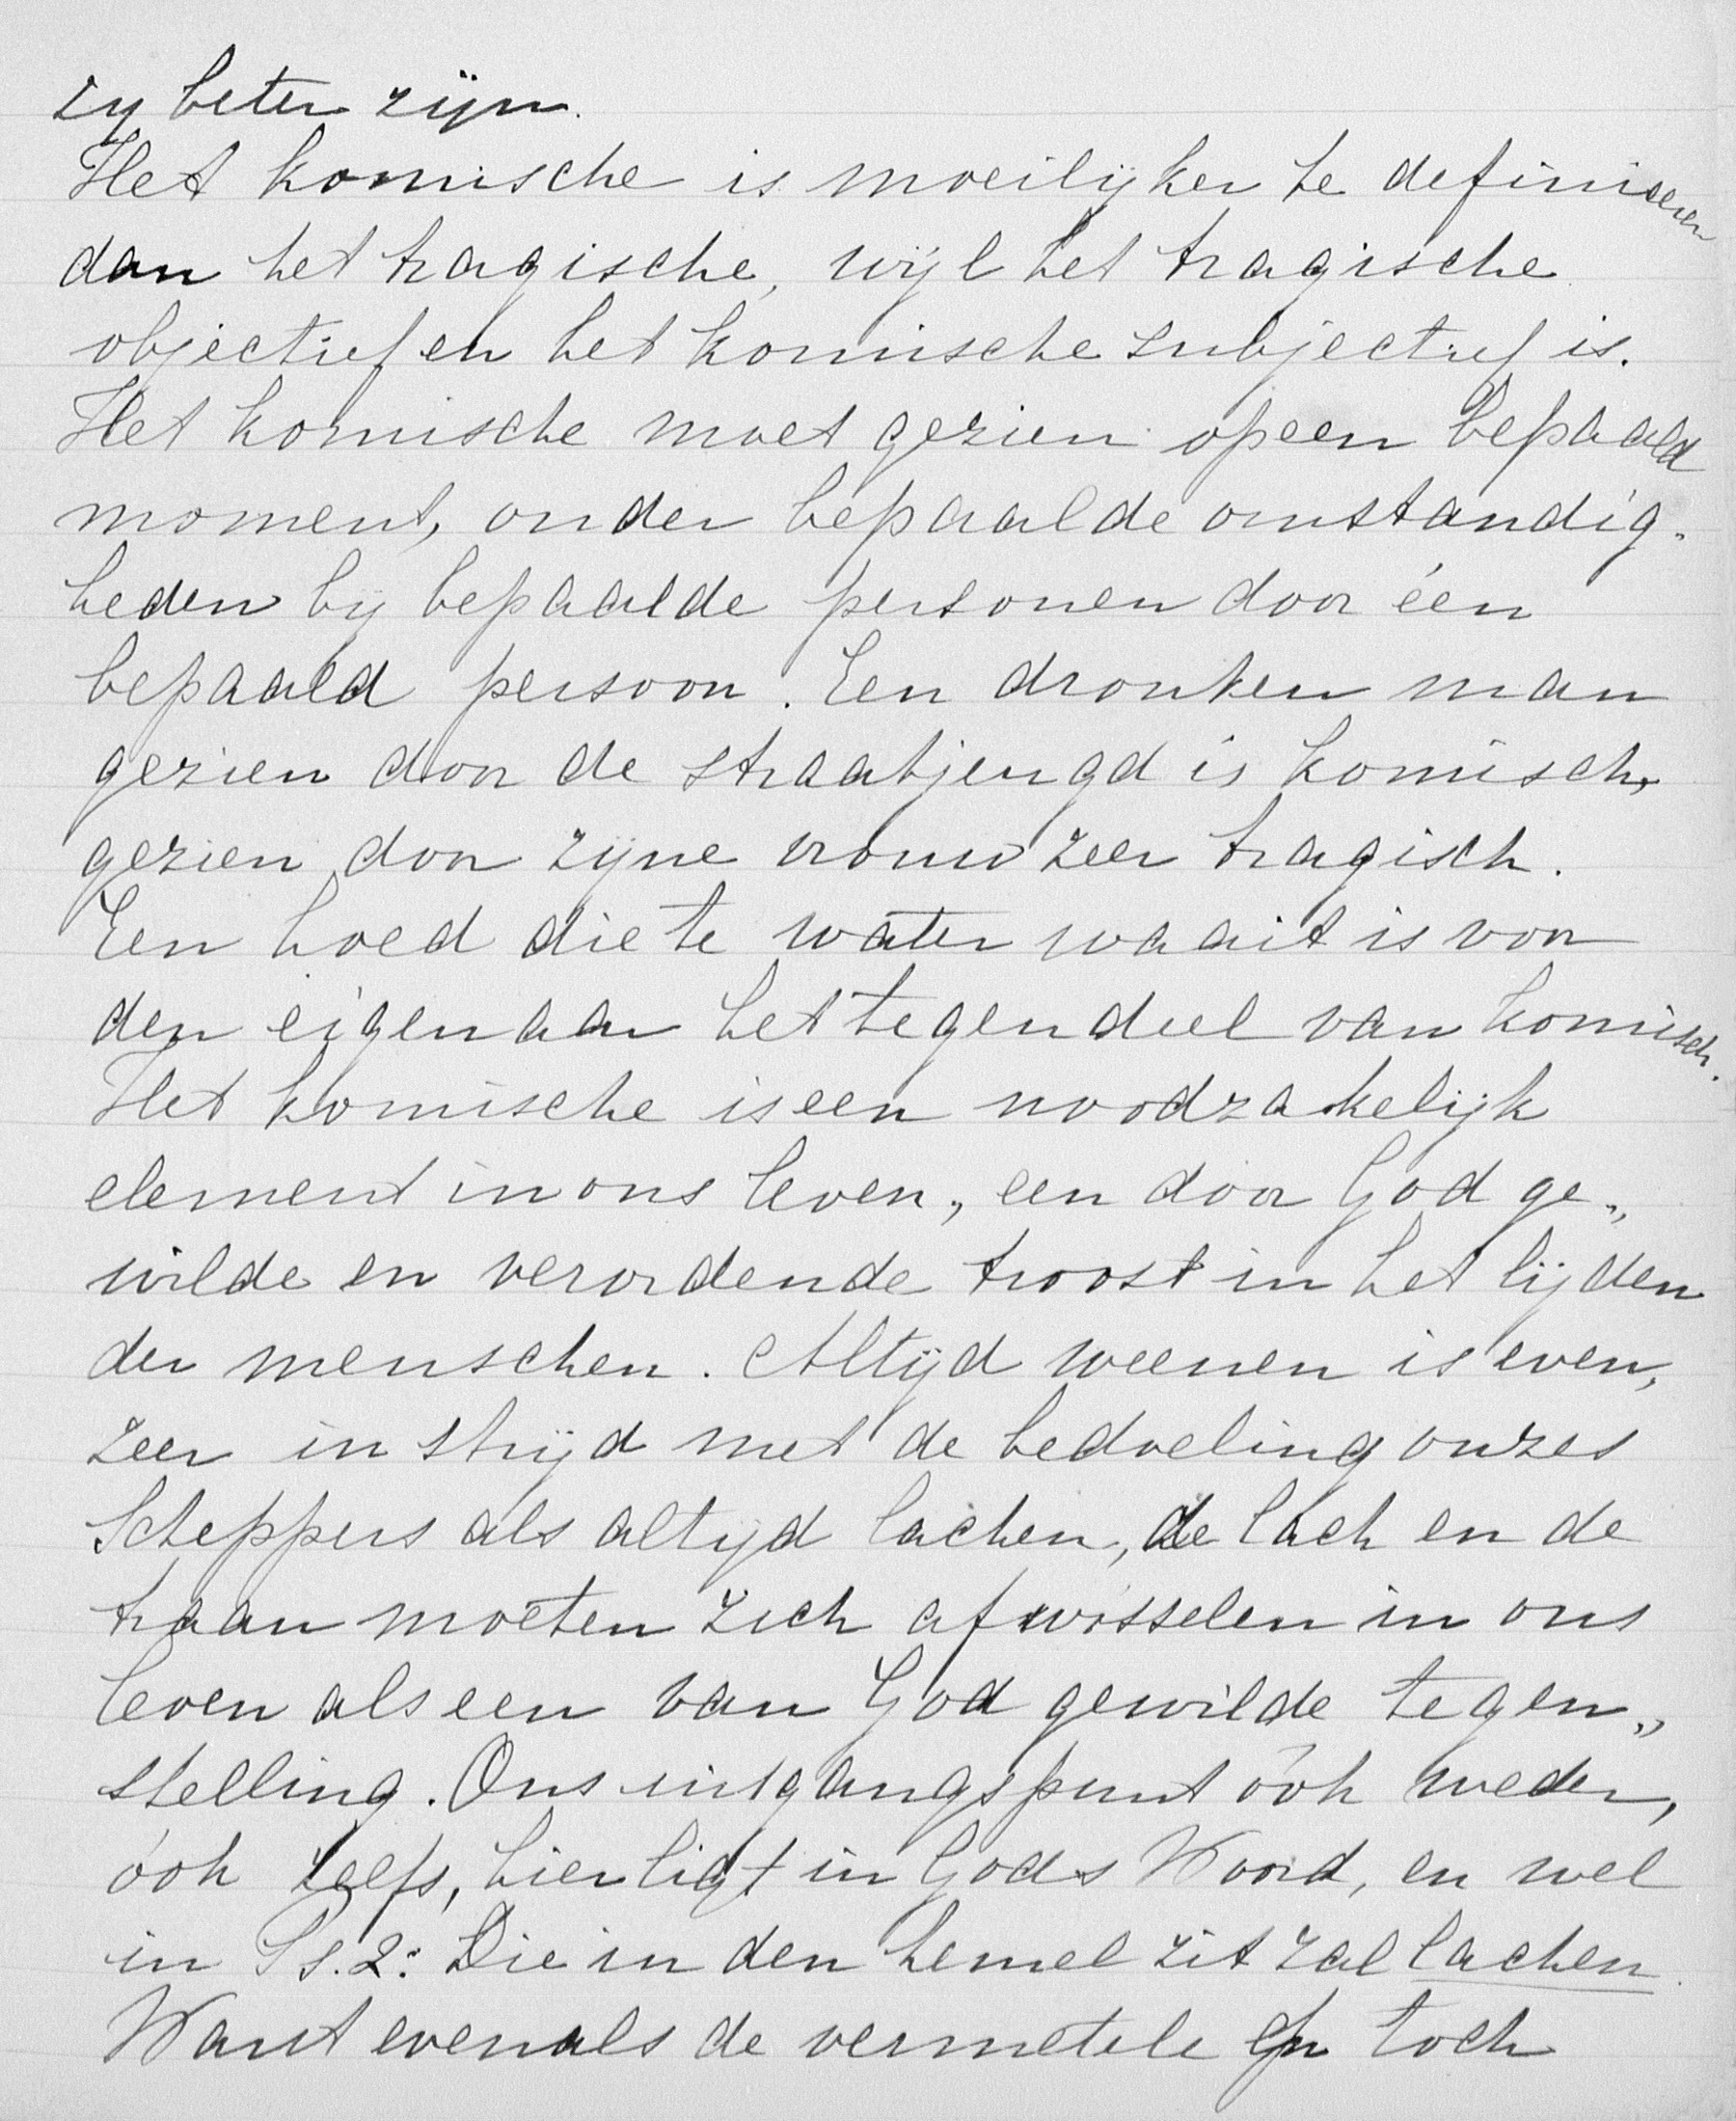 zy beter zijn.
Het komische is moeilijker te definieeren
dan het tragische, wijl het tragische
objectief en het komische subjectief is.
Het komische moet gezien op een bepaald
moment, onder bepaalde omstandig-
heden by bepaalde personen door één
bepaald persoon. Een dronken man
gezien door de straatjeugd is komisch,
gezien door zijne vrouw zeer tragisch.
Een hoed die te water waait is voor
den eigenaar het tegendeel van komisch.
Het komische is een noodzakelijk
element in ons leven, een door God ge„
wilde en verordende troost in het lijden
der menschen. Altijd weenen is even,
zeer in strijd met de bedoeling onzes
Scheppers als altijd lachen, de lach en de
traan moeten zich afwisselen in ons
leven als een van God gewilde tegen„
stelling. Ons uitgangspunt óók weder,
óók zelfs, hier ligt in Gods Woord, en wel
in Ps. 2: Die in den hemel zit zal lachen.
Want evenals de vermetele en toch